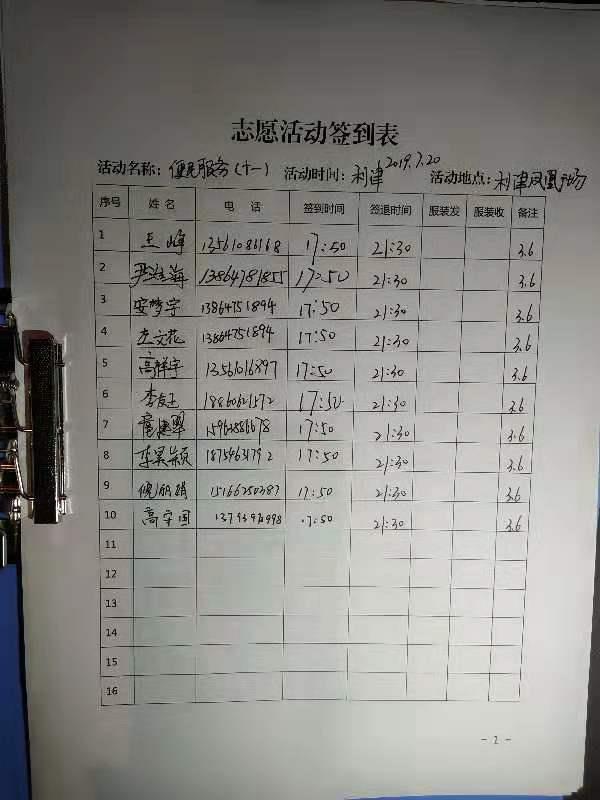 志愿活动签到表
活动名称: 便民服务(十一) 活动时间: 利津 2019.7.20 活动地点: 利津凤凰广场
序号 姓名 电话 签到时间 签退时间 服装发 服装收 备注
1 王峰 17:50 21:30 3.6
2 13864781855 17:50 21:30 3.6
3 安梦宇 13864751894 17:50 21:30 3.6
4 13864751894 17:50 21:30 3.6
5 高祥宇 17:50 21:30 3.6
6 李友玉 17:50 21:30 3.6
7 17:50 21:30 3.6
8 李昊颖 17:50 21:30 3.6
9 倪丽娟 15166250387 17:50 21:30 3.6
10 高守国 17:50 21:30 3.6
11
12
13
14
15
16
- 2 -